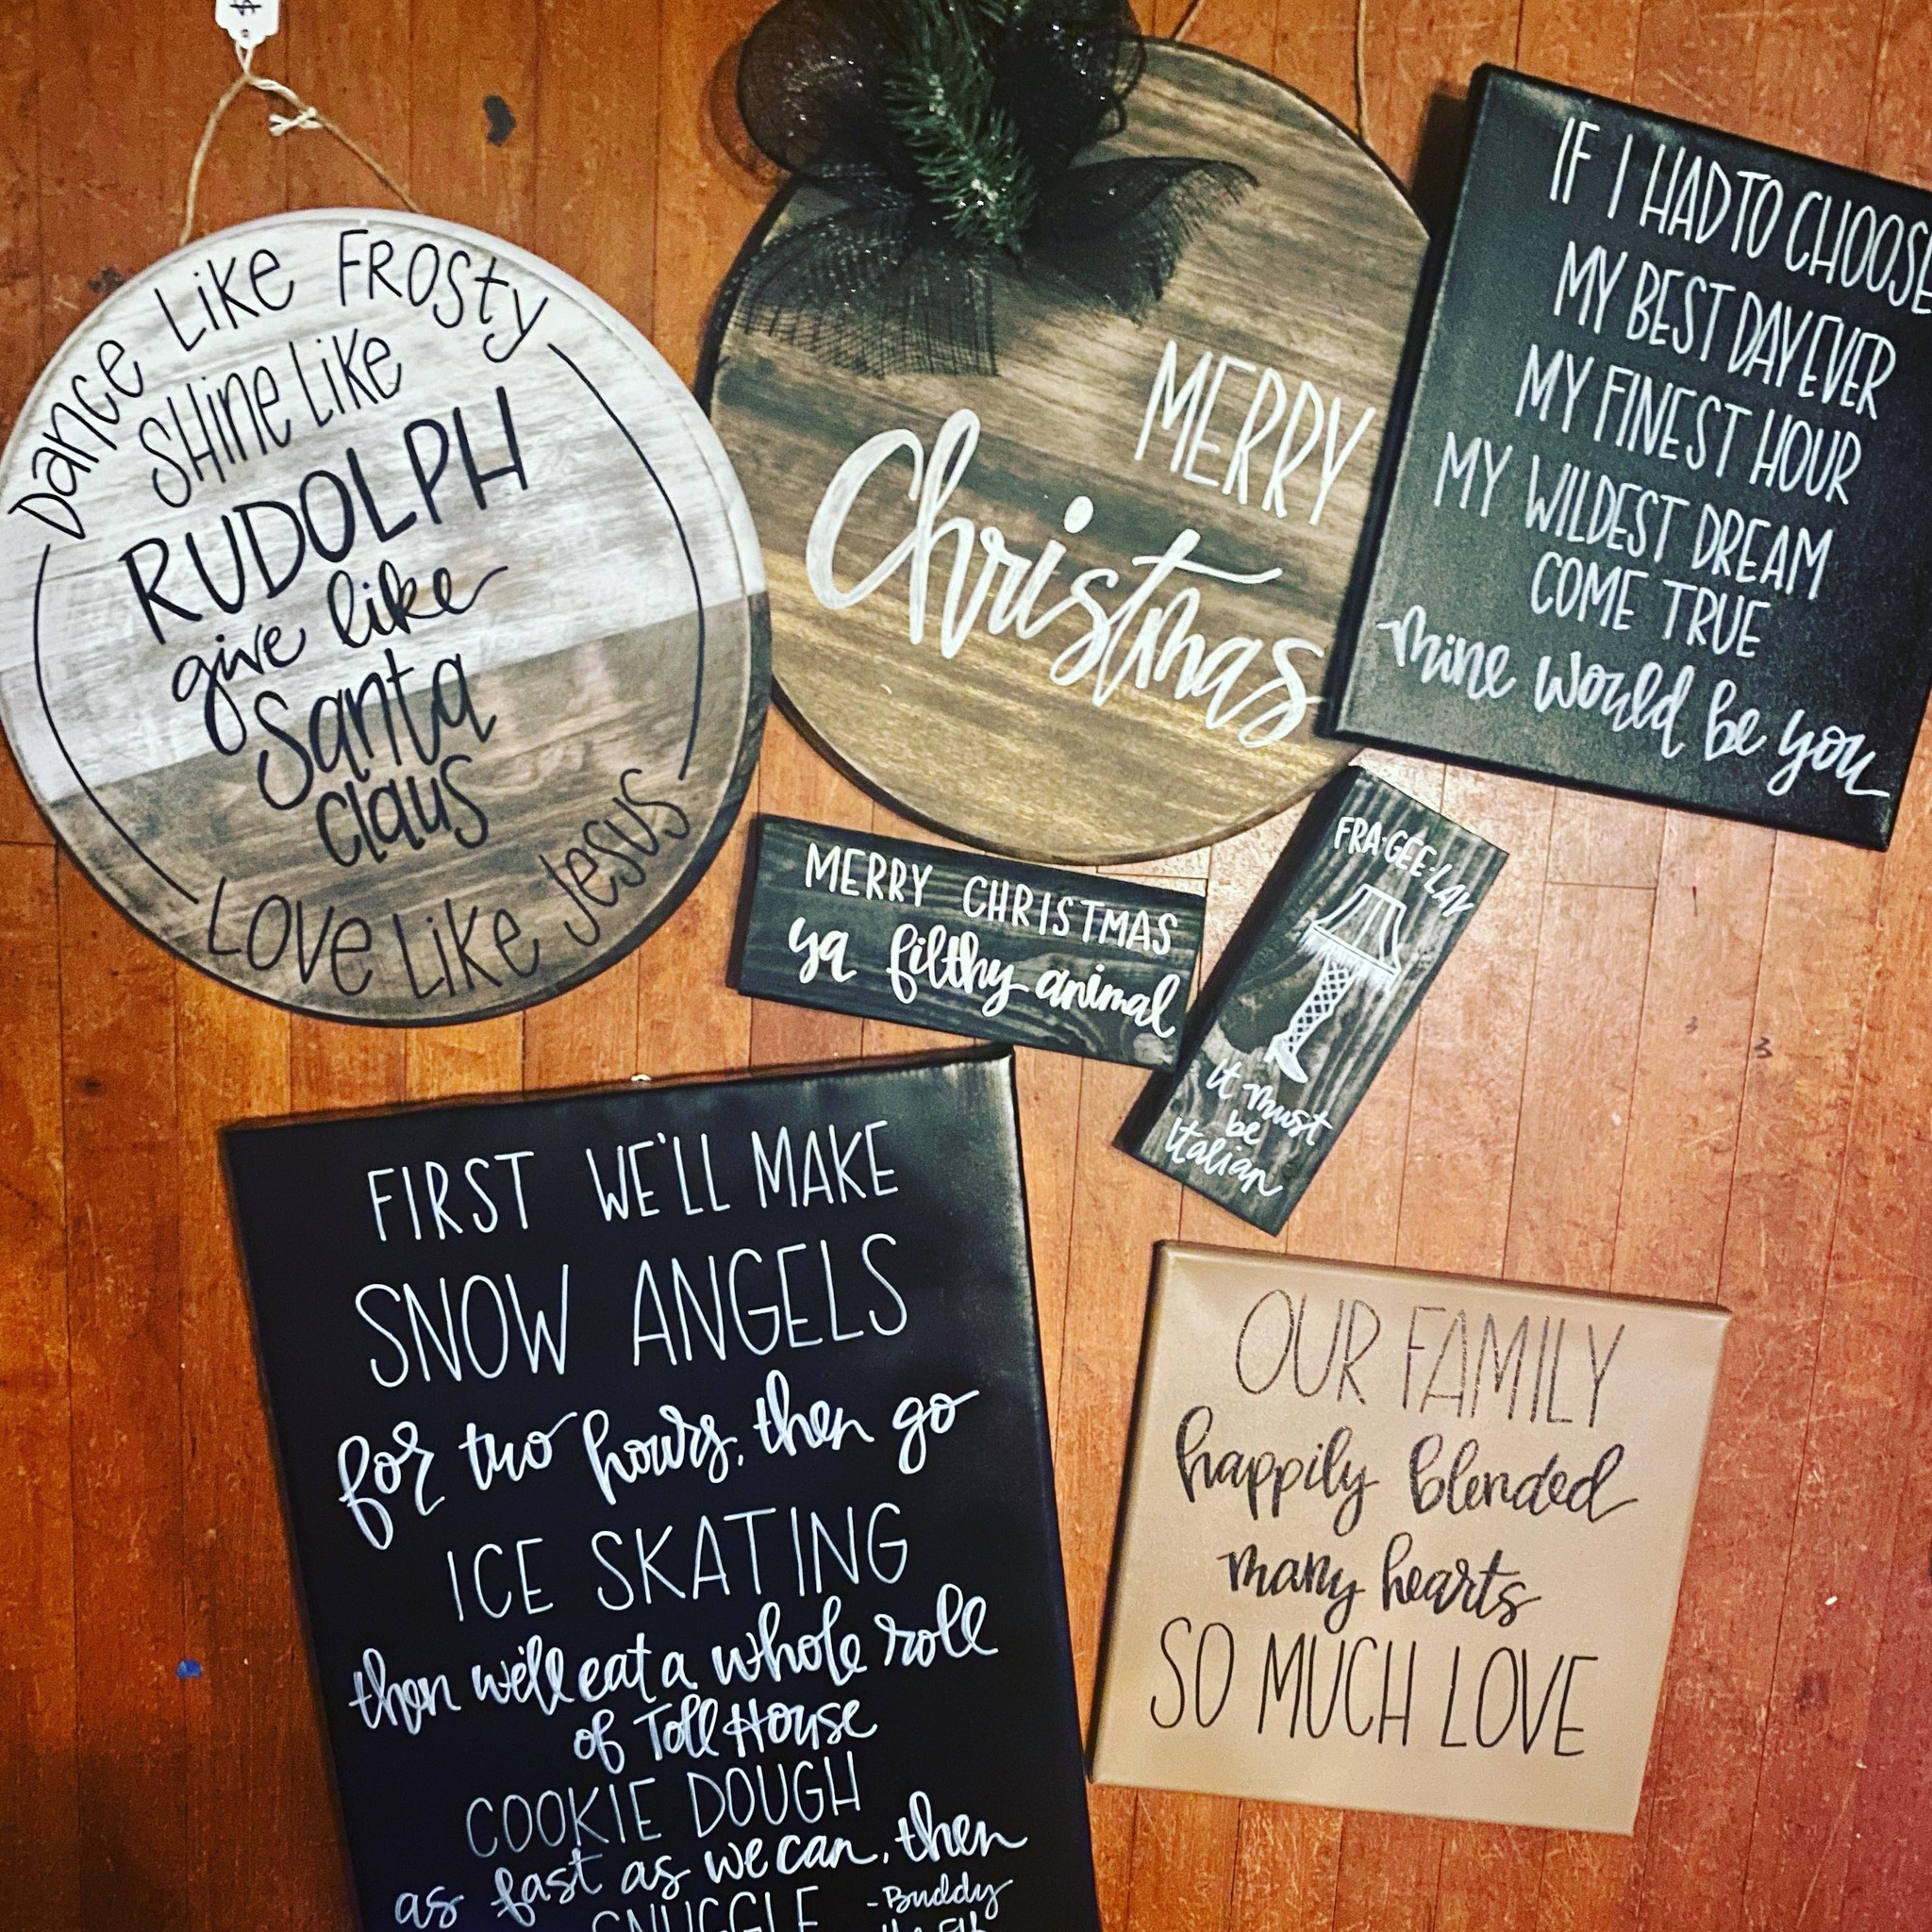 $
Dance Like Frosty
SHine Like
RUDOLPH
give like
Santa
claus
LOVe Like Jesus
MERRY
Christmas
IF I HAD TO CHOOSE
MY BEST DAY EVER
MY FINEST HOUR
MY WILDEST DREAM
COME TRUE
mine would be you
MERRY CHRISTMAS
ya filthy animal
FRA-GEE-LAY
it must
be
italian
FIRST WE'LL MAKE
SNOW ANGELS
for two hours, then go
ICE SKATING
then we'll eat a whole roll
of Toll House
COOKIE DOUGH
as fast as we can, then
SNUGGLE
-Buddy
the Elf
OUR FAMILY
happily blended
many hearts
SO MUCH LOVE